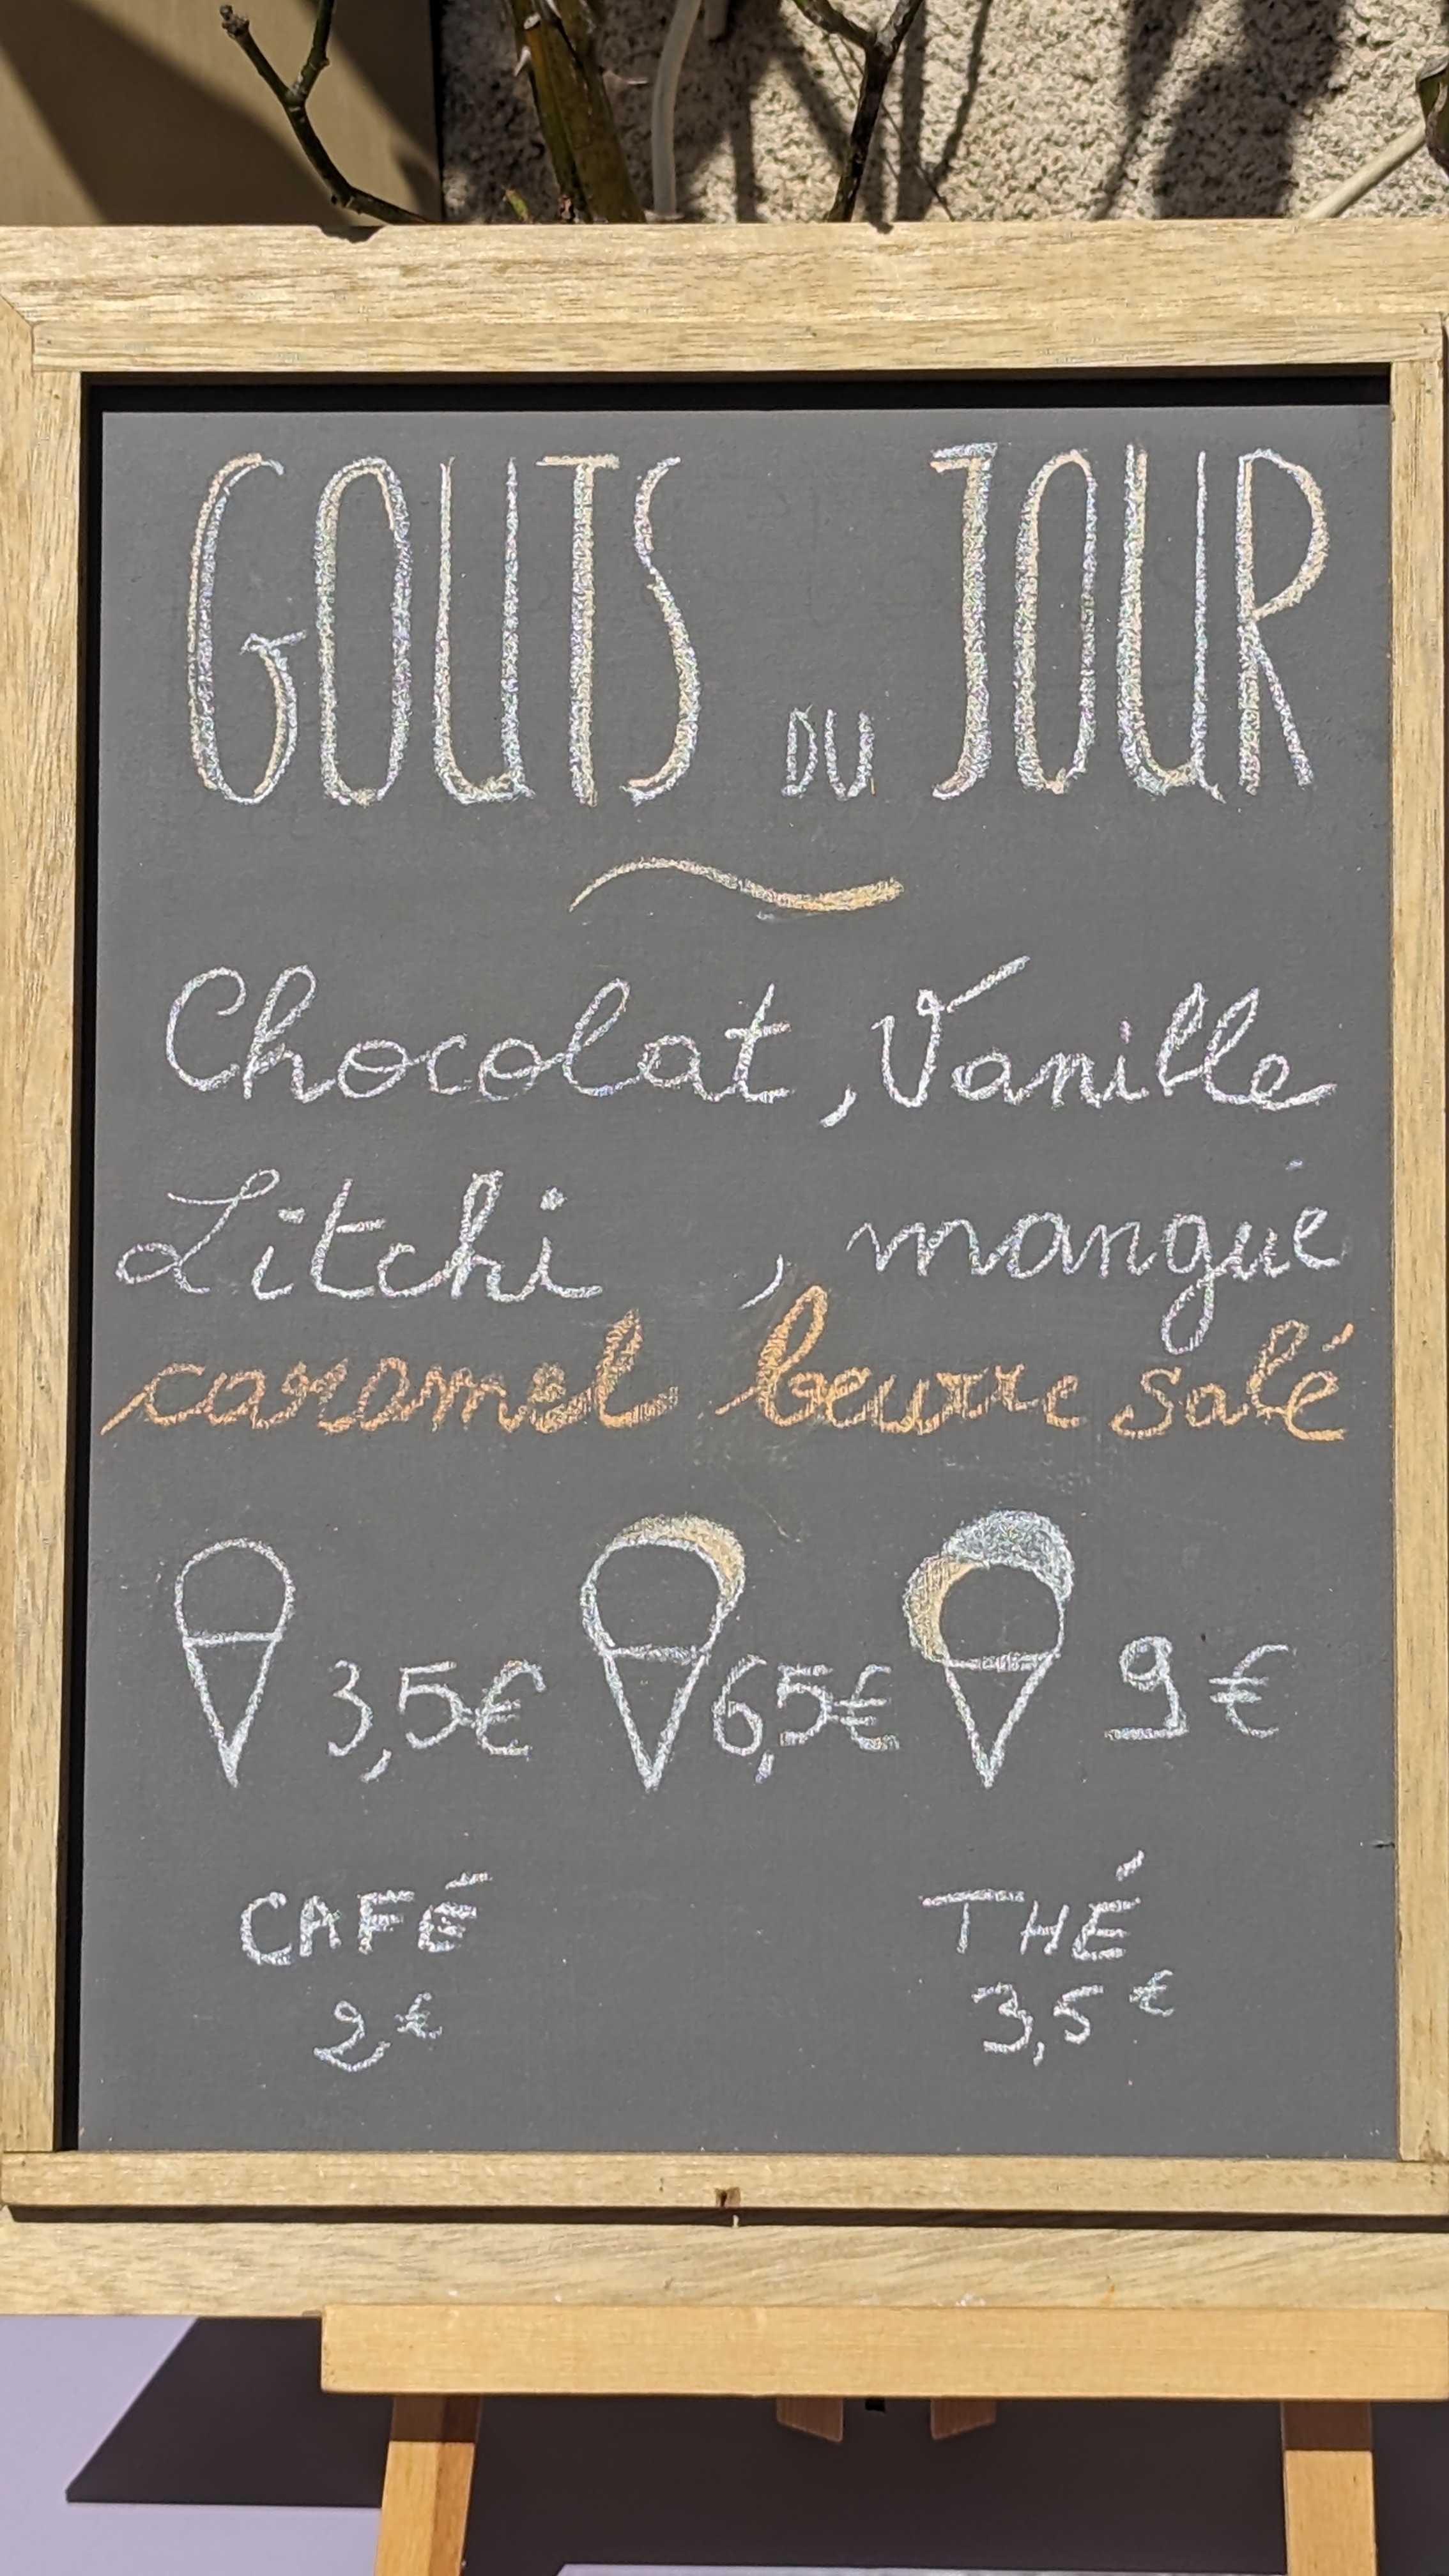 GOUTS DU JOUR
Chocolat, Vanille
Litchi , mangue
caramel beurre salé
3,5€ 6,5€ 9€
CAFÉ THÉ
2€ 3,5€